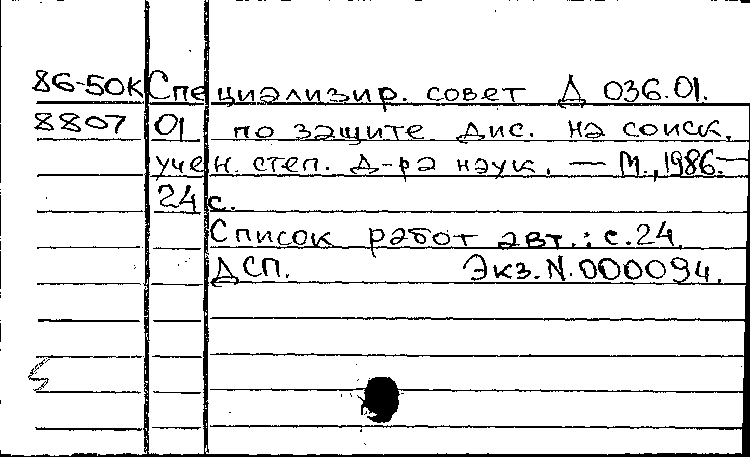 86-50К Специализир. совет Д 036.01.
8807 01 по защите дис. на соиск.
учен. степ. д-ра наук. — М., 1986.—
24 с.
Список работ авт.: с.24.
ДСП. Экз.N.000094.